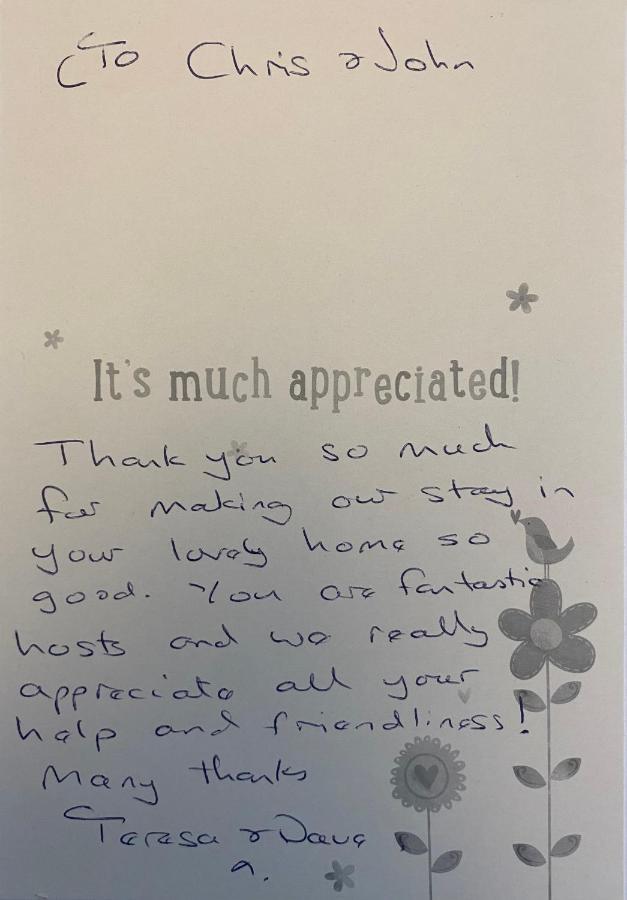 To Chris & John
It's much appreciated!
Thank you so much
for making our stay in
your lovely home so
good. You are fantastic
hosts and we really
appreciate all your
help and friendliness!
Many thanks
Teresa & Dave
a.